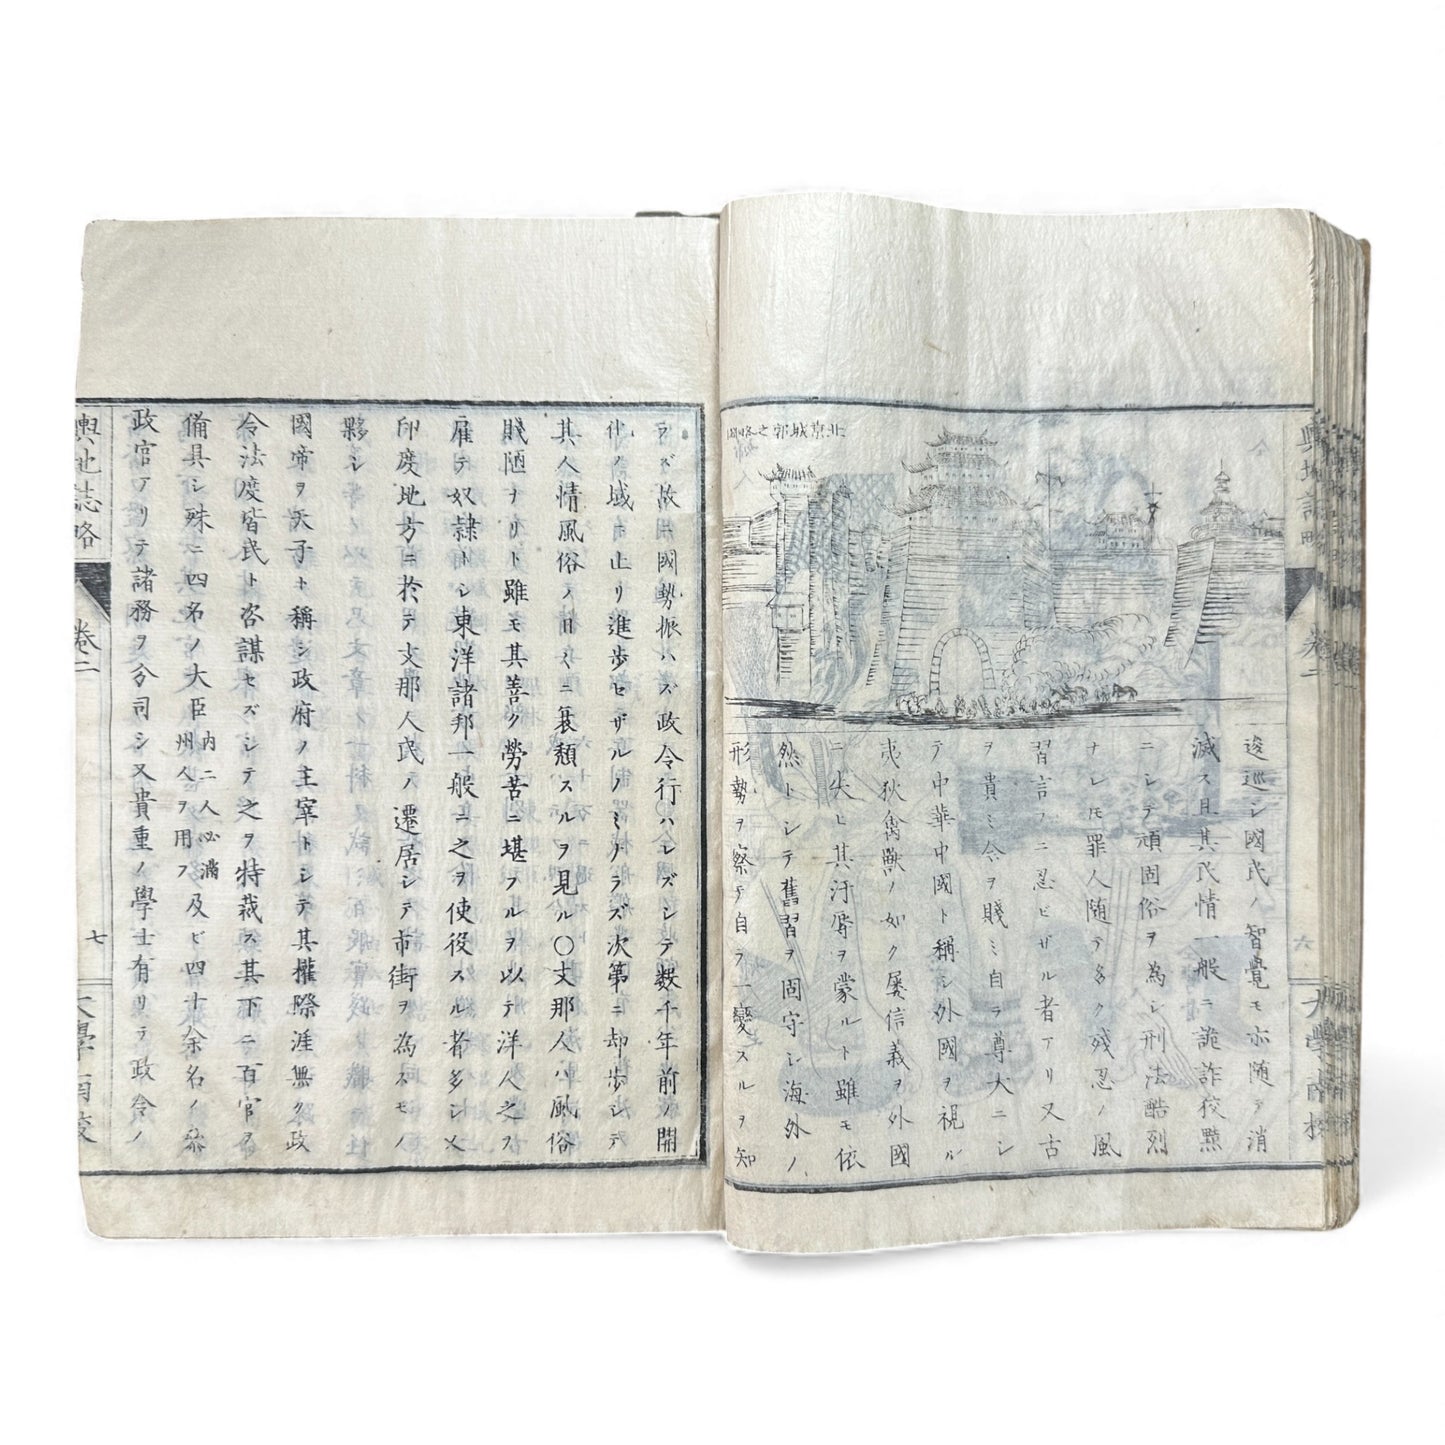 北京城郭之略圖
逡巡シ國民ノ智覺モ亦隨テ消
滅ス且其民情一般ニ詭詐狡黠
ニシテ頑固俗ヲ為シ刑法酷烈
ナレ𪜈罪人随テ多ク残忍ノ風
習言フニ忍ビザル者アリ又古
ヲ貴ミ今ヲ賤ミ自ラ尊大ニシ
テ中華中國ト稱シ外國ヲ視ル
夷狄禽獸ノ如ク屡信義ヲ外國
ニ失ヒ其汙辱ヲ蒙ルト雖モ依
然トシテ舊習ヲ固守シ海外ノ
形勢ヲ察テ自ラ一變スルヲ知
ラズ故ニ國勢振ハズ政令行ハレズシテ数千年前ノ開
化ノ域ニ止リ進歩セザルノミナラズ次第ニ却歩シテ
其人情風俗ノ日ニ衰頽スルヲ見ル〇支那人ハ風俗
賤陋ナリト雖モ其善ク勞苦ニ堪フルヲ以テ洋人之ヲ
雇テ奴隷トシ東洋諸邦一般ニ之ヲ使役スル者多シ又
印度地方ニ於テ支那人民ノ遷居シテ市街ヲ為スモノ
夥シ
國帝ヲ天子ト稱シ政府ノ主宰トシテ其權際涯無ク政
令法度皆民ト咨謀セズシテ之ヲ特裁ス其下ニ百官ヲ
備具シ殊ニ四名ノ大臣内二人必満州人ヲ用フ及ビ四十余名ノ参
政官アリテ諸務ヲ分司シ又貴重ノ學士有リテ政令ノ
輿地誌略
卷二
七
大學南校
輿地誌略
卷二
六
大學南校